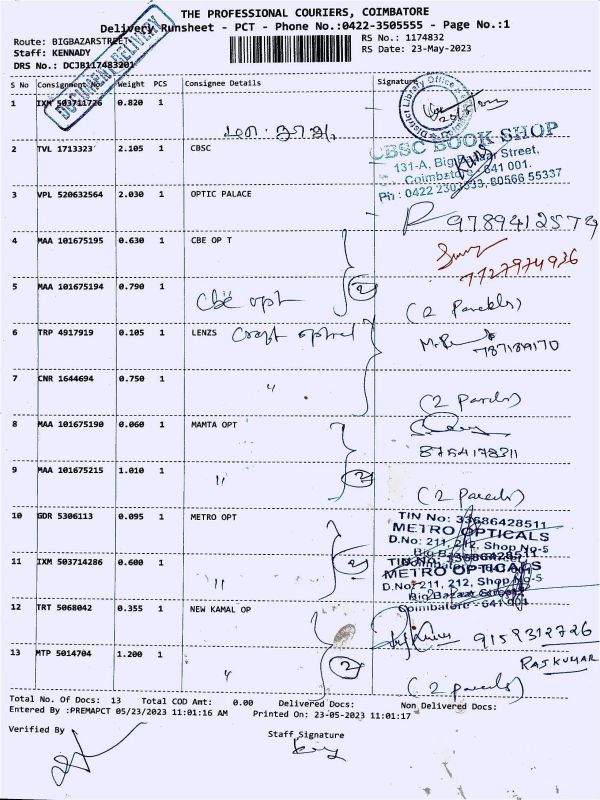 THE PROFESSIONAL COURIERS, COIMBATORE
Delivery Runsheet - PCT - Phone No.:0422-3505555 - Page No.:1
Route: BIGBAZARSTREET
RS No.: 1174832
Staff: KENNADY
RS Date: 23-May-2023
DRS No.: DCJB117483201
S No Consignment No Weight PCS Consignee Details Signature
1 IXM 503711726 0.820 1
2 TVL 1713323 2.105 1 CBSC
CBSC BOOK SHOP
131-A, Big Bazaar Street,
Coimbatore - 641 001.
Ph : 0422 2303333, 80566 55337
3 VPL 520632564 2.030 1 OPTIC PALACE
9789412574
4 MAA 101675195 0.630 1 CBE OP T
7727974936
5 MAA 101675194 0.790 1
Cbe opt 2 (2 Parcels)
6 TRP 4917919 0.105 1 LENZS
787189170
7 CNR 1644694 0.750 1 "
(2 Parcels)
8 MAA 101675190 0.060 1 MAMTA OPT
8754178311
9 MAA 101675215 1.010 1 " 2
(2 Parcels)
10 GDR 5306113 0.095 1 METRO OPT
TIN No: 33686428511
METRO OPTICALS
D.No: 211, 212, Shop No-5
11 IXM 503714286 0.600 1 " 2
METRO OPTICALS
D.No: 211, 212, Shop No-5
Big Bazaar Street
Coimbatore - 641 001
12 TRT 5068042 0.355 1 NEW KAMAL OP
9159312726
RAJKUMAR
13 MTP 5014704 1.200 1 " 2
(2 parcels)
Total No. Of Docs: 13 Total COD Amt: 0.00 Delivered Docs: Non Delivered Docs:
Entered By :PREMAPCT 05/23/2023 11:01:16 AM Printed On: 23-05-2023 11:01:17
Verified By
Staff Signature